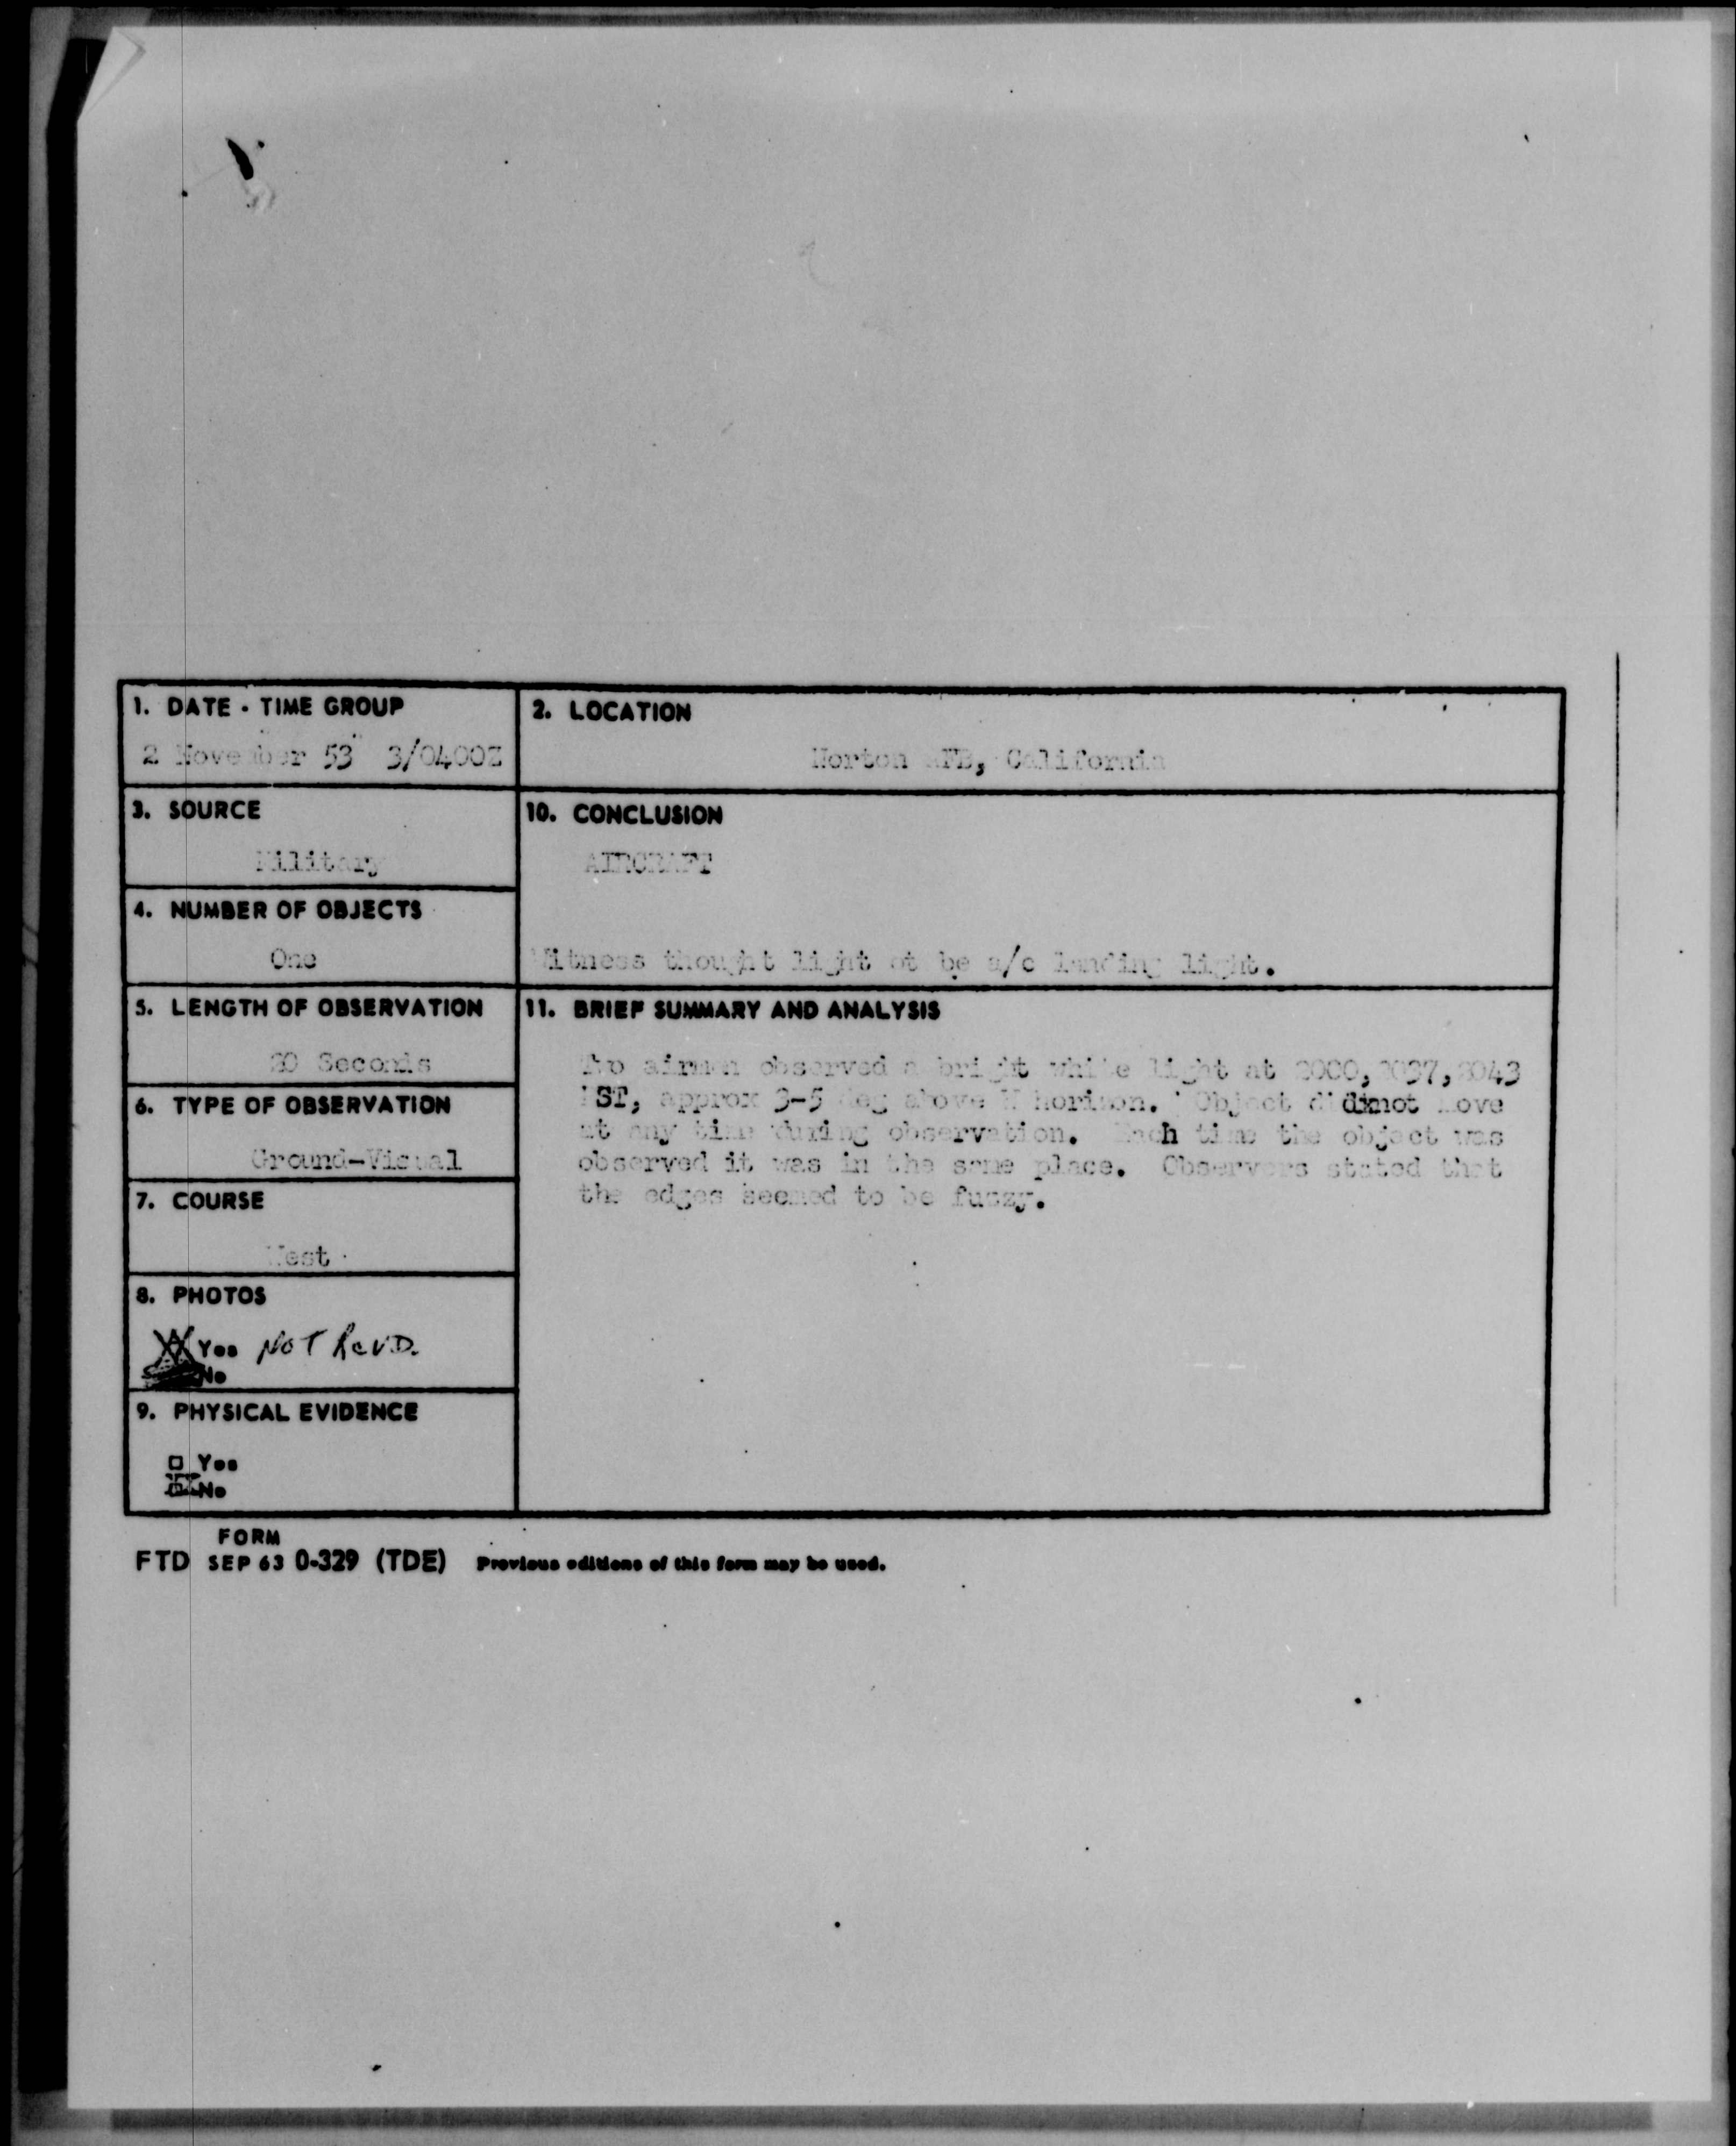 1. DATE - TIME GROUP
2 November 53 3/0400Z
2. LOCATION
Norton AFB, California
3. SOURCE
Military
10. CONCLUSION
AIRCRAFT
Witness thought light ot be a/c landing light.
4. NUMBER OF OBJECTS
One
5. LENGTH OF OBSERVATION
Seconds
11. BRIEF SUMMARY AND ANALYSIS
Two airmen observed a bright white light at 2000, 2037, 2043
ST, approx 3-5 deg above horizon. Object did not move
at any time during observation. Each time the object was
observed it was in the same place. Observers stated that
the edges seemed to be fuzzy.
6. TYPE OF OBSERVATION
Ground-Visual
7. COURSE
West
8. PHOTOS
Yes NOT RCVD.
No
9. PHYSICAL EVIDENCE
Yes
No
FORM
FTD SEP 63 0-329 (TDE) Previous editions of this form may be used.